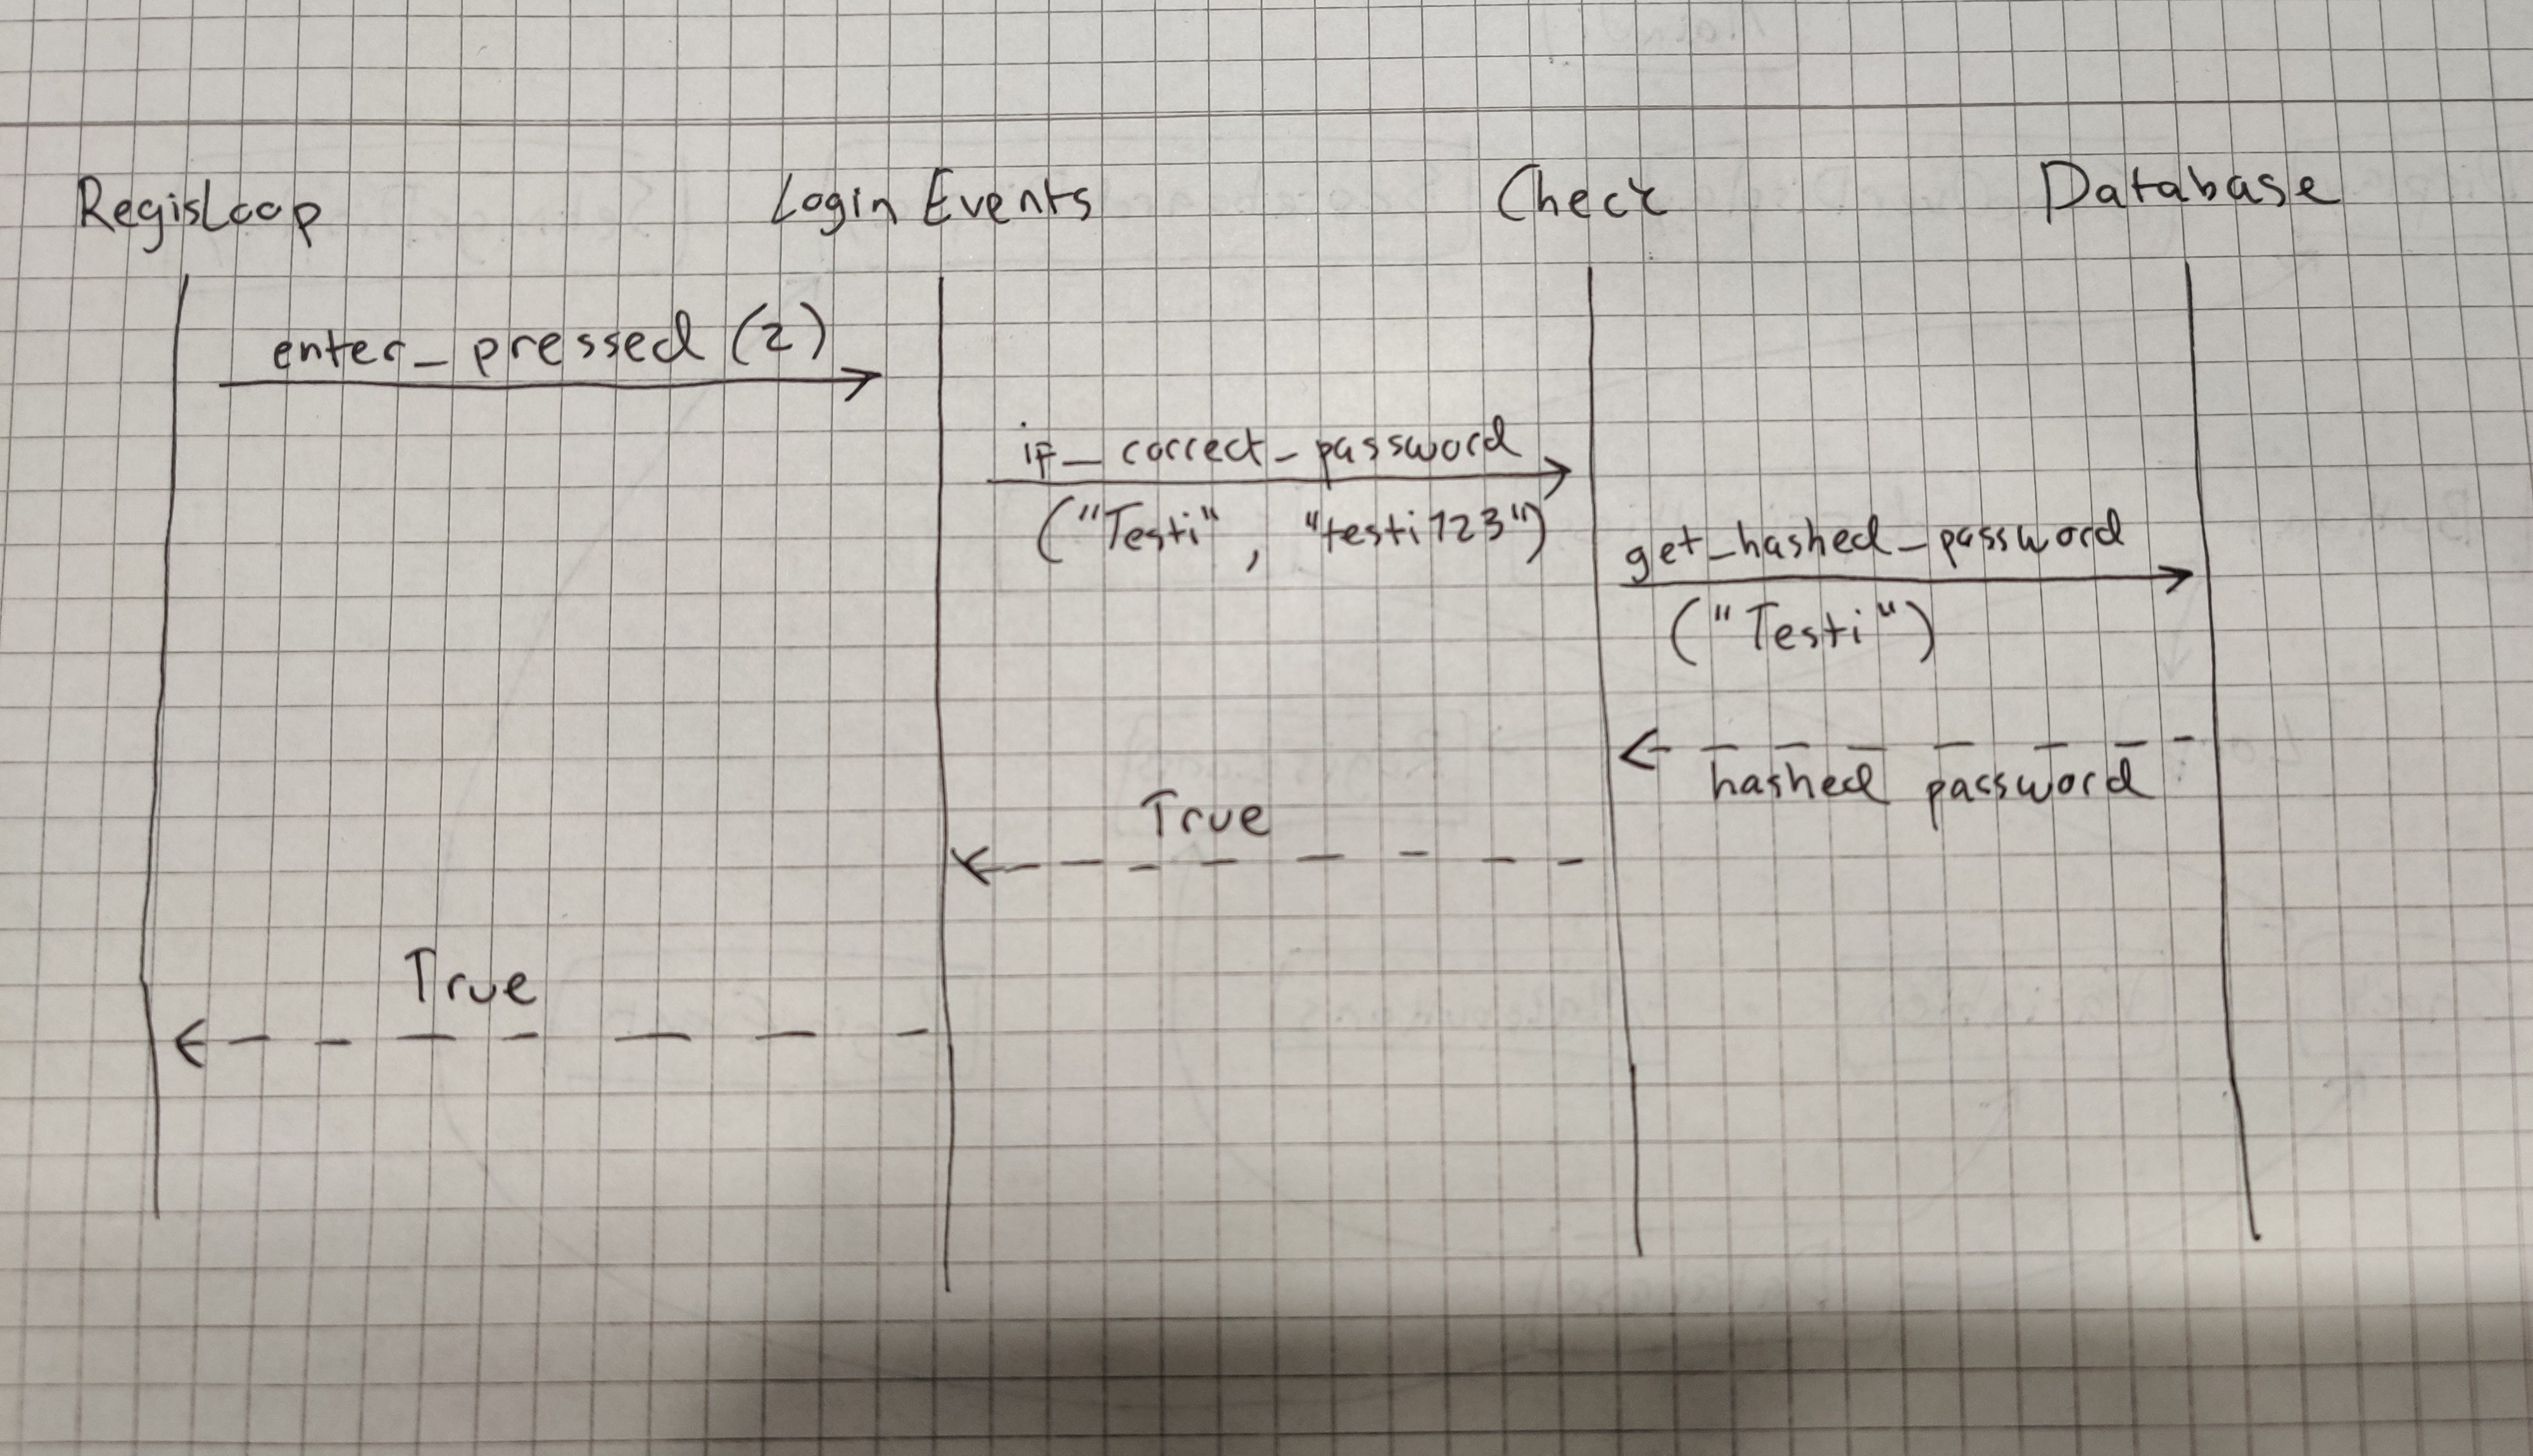 RegisLoop Login Events Check Database
enter_pressed (2)
if_correct_password
("Testi", "testi123")
get_hashed_password
("Testi")
hashed password
True
True